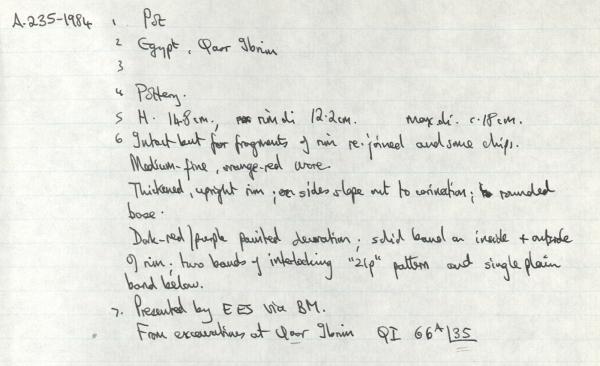 A.235-1984 1 Pot
2 Egypt, Qasr Ibrim
3
4 Pottery.
5 H. 14.8cm., rim di 12.2cm. max di. c.18cm.
6 Intact but for fragments of rim re-joined and some chips.
Medium-fine, orange-red ware.
Thickened, upright rim; sides slope out to carination; rounded
base.
Dark-red/purple painted decoration; solid band on inside + outside
of rim; two bands of interlocking "zip" pattern and single plain
band below.
7. Presented by EES via BM.
From excavations at Qasr Ibrim QI 66A/35